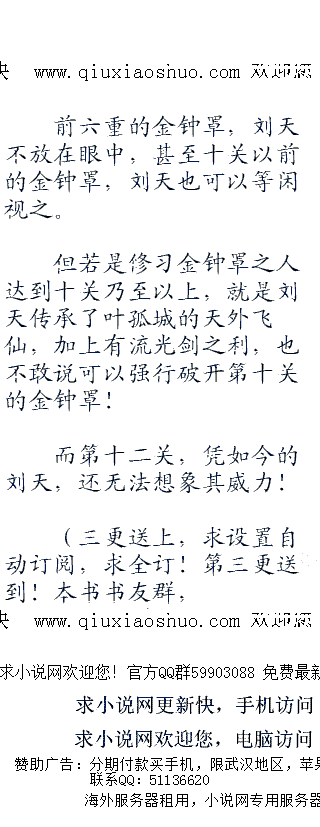 快 www.qiuxiaoshuo.com 欢迎您
前六重的金钟罩，刘天
不放在眼中，甚至十关以前
的金钟罩，刘天也可以等闲
视之。
但若是修习金钟罩之人
达到十关乃至以上，就是刘
天传承了叶孤城的天外飞
仙，加上有流光剑之利，也
不敢说可以强行破开第十关
的金钟罩！
而第十二关，凭如今的
刘天，还无法想象其威力！
（三更送上，求设置自
动订阅，求全订！第三更送
到！本书书友群，
快 www.qiuxiaoshuo.com 欢迎您
求小说网欢迎您！官方QQ群59903088 免费最新
求小说网更新快，手机访问
求小说网欢迎您，电脑访问
赞助广告：分期付款买手机，限武汉地区，苹果
联系QQ：51136620
海外服务器租用，小说网专用服务器